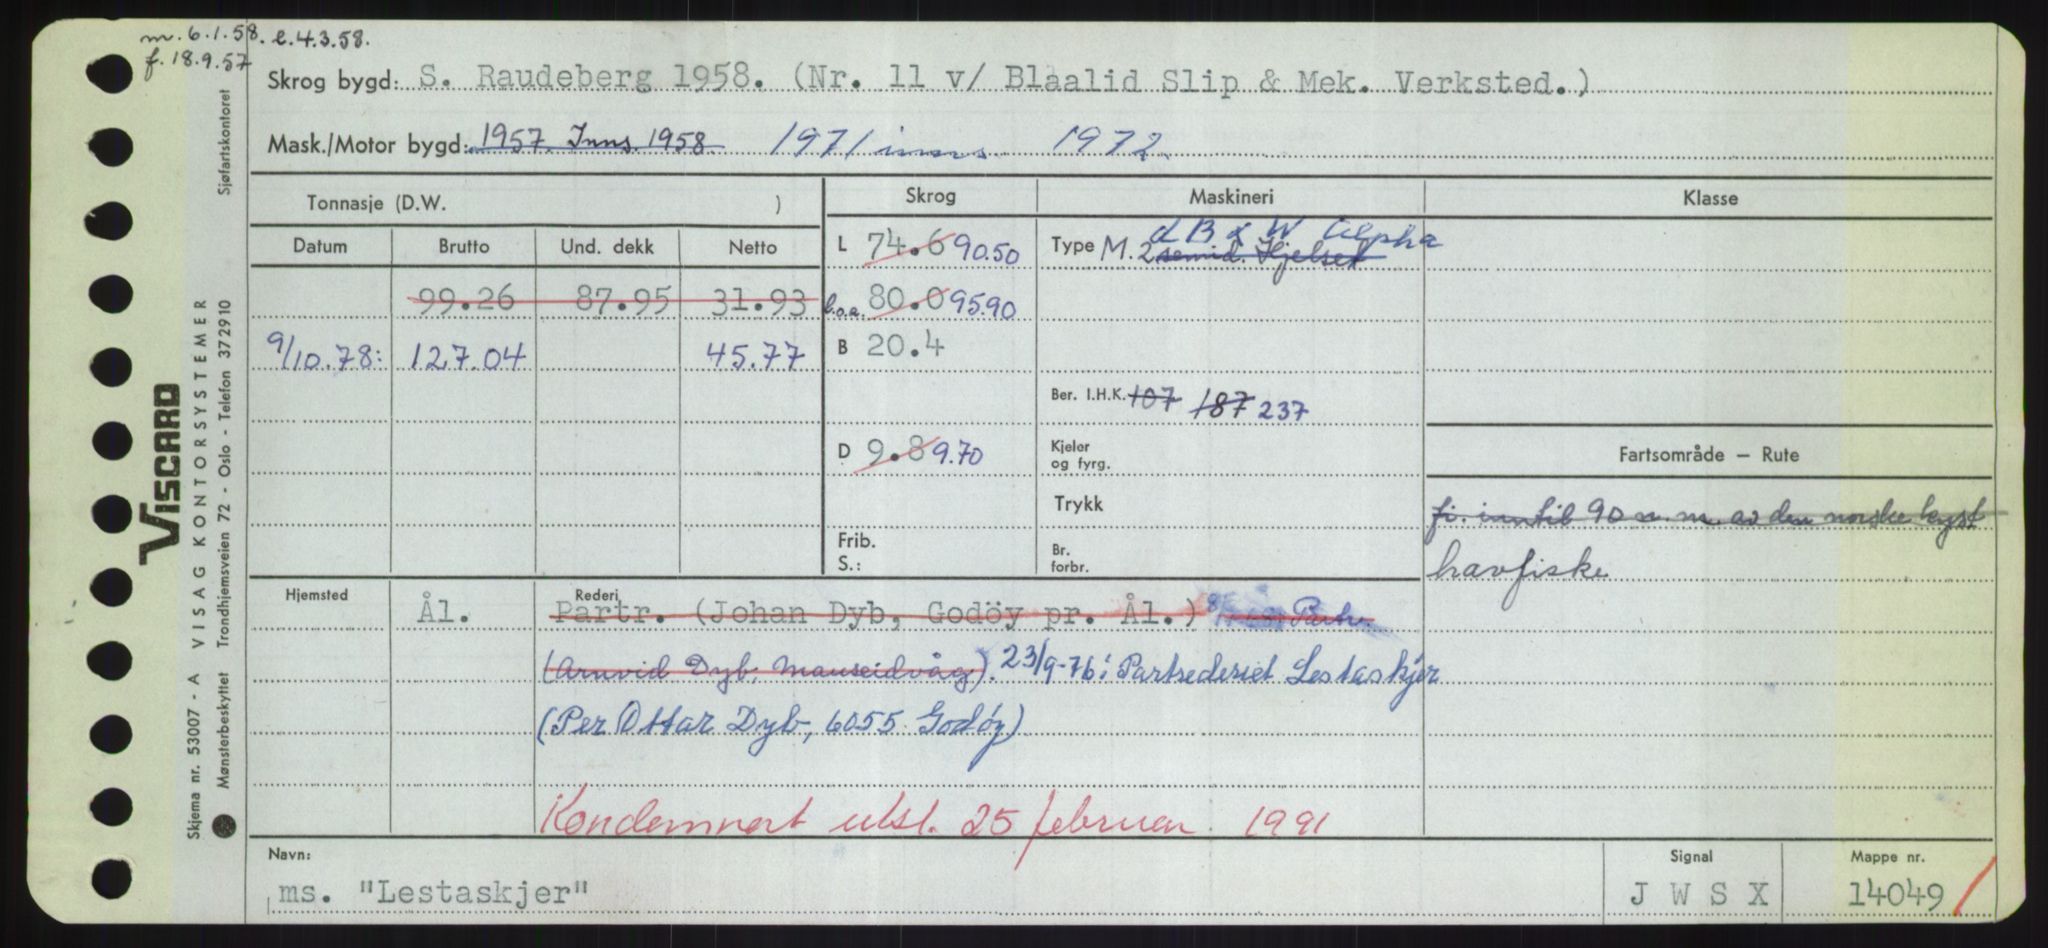 m. 6.1.58. e. 4.3.58.
f. 18.9.57
Skrog bygd: S. Raudeberg 1958. (Nr. 11 v/ Blaalid Slip & Mek. Verksted.)
Mask./Motor bygd: 1957. Inns. 1958 1971 inns. 1972.
Tonnasje (D.W. ) Skrog Maskineri Klasse
Datum Brutto Und. dekk Netto
L 74.6 90.50
Type M. 2 semid. Hjelset
d B & W Alpha
99.26 87.95 31.93
l.o.a. 80.0 95.90
9/10.78: 127.04 45.77
B 20.4
Ber. I.H.K. 107 187 237
D 9.8 9.70
Kjeler
og fyrg.
Fartsområde — Rute
Trykk
fi. inntil 90 n.m. av den norske kyst
Frib.
S.:
Br.
forbr.
havfiske
Hjemsted Ål.
Rederi
Partr. (Johan Dyb, Godöy pr. Ål.) Partr.
(Arnvid Dyb, Mauseidvåg). 23/9-76: Partsrederiet Lestaskjer
(Per Ottar Dyb, 6055 Godøy)
Kondemnert utsl. 25 februar 1991
Navn: ms. "Lestaskjer"
Signal J W S X
Mappe nr. 14049
VISCARD
VISAG KONTORSYSTEMER
Skjema nr. 53007 - A
Mønsterbeskyttet Trondhjemsveien 72 - Oslo - Telefon 372910
Sjøfartskontoret